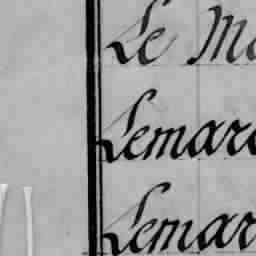 Le Ma
Lemare
Lemar